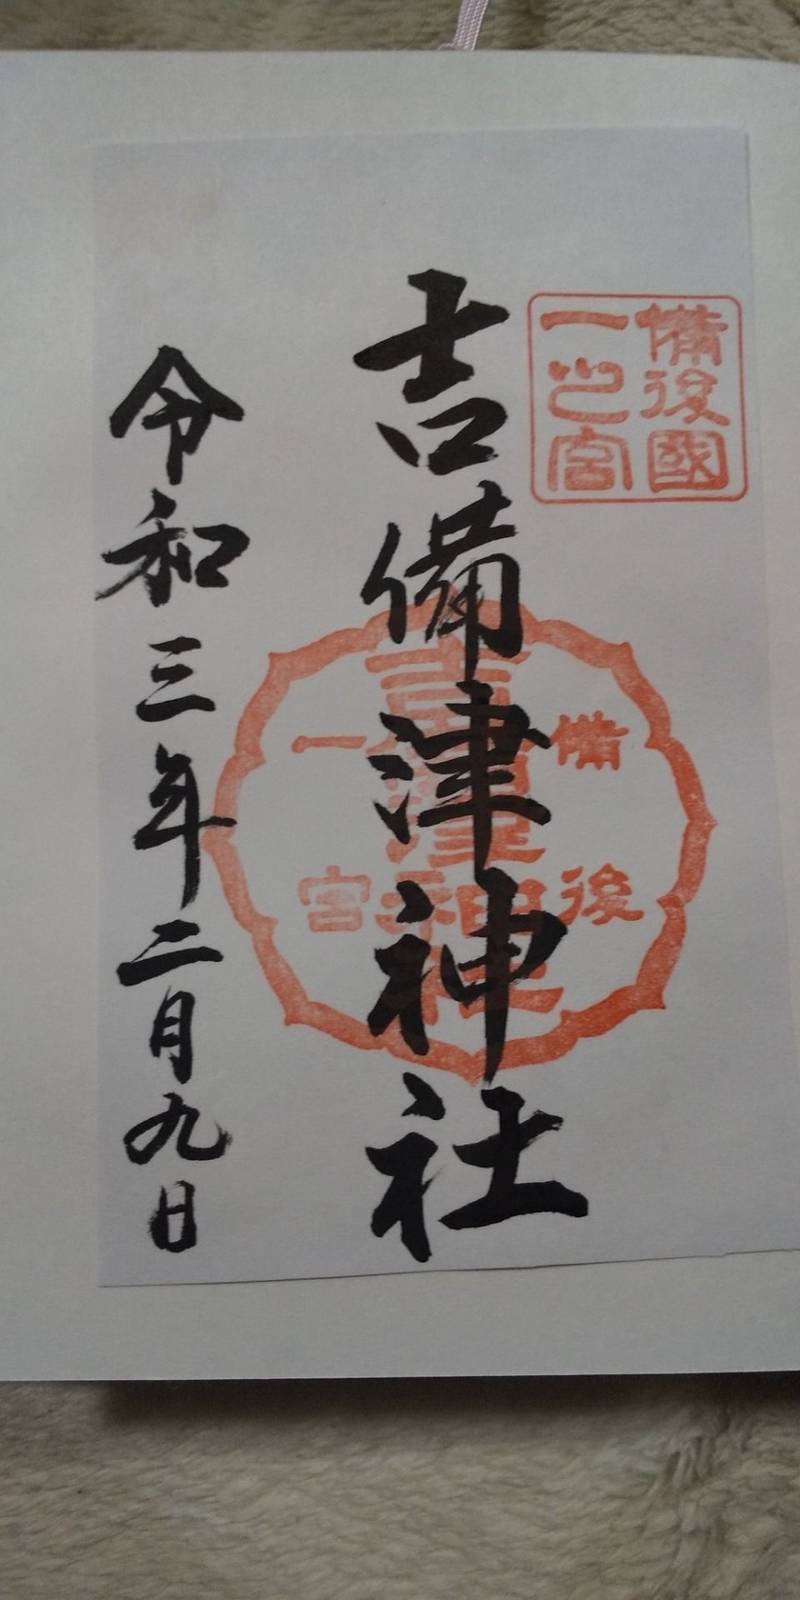 備後國
一之宮
吉備津神社
備後
吉備津神社
一宮
令和三年二月九日